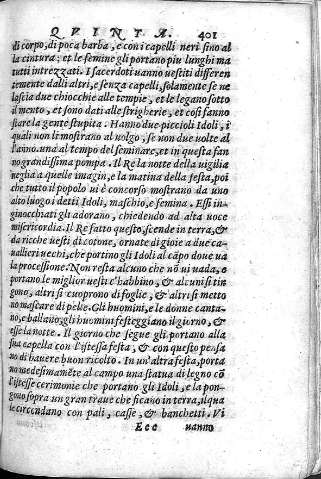 QVINTA. 401
di corpo, di poca barba, e con i capelli neri sino al
la cintura, et le femine gli portano piu lunghi ma
tutti intrezzati. I sacerdoti uanno uestiti differen
temente dalli altri, e senza capelli, solamente se ne
lascia due chiocchie alle tempie, et le legano sotto
il mento, et sono dati alle strigherie, et cosi fanno
stare la gente stupita. Hanno due piccioli Idoli, i
quali non li mostrano al uolgo, se non due uolte al
l'anno. una al tempo del seminare, et in questa fan
no grandissima pompa. Il Re la notte della uigilia
ueglia a quelle imagini, e la matina della festa, poi
che tutto il popolo ui è concorso mostrano da uno
alto luogo i detti Idoli, maschio, e femina. Essi in-
ginocchiati gli adorano, chiedendo ad alta uoce
misericordia. Il Re fatto questo, scende in terra, &
da ricche uesti di cotone, ornate di gioie a due ca-
uallieri uechi, che portino gli Idoli al cãpo doue ua
la processione. Non resta alcuno che nõ ui uada, e
portano le miglior uesti c'habbino, & alcuni si tin
gono, altri si cuoprono di foglie, & altri si metto
no mascare di pelle. Gli huomini, e le donne canta-
no, e ballano, gli huomini festeggiano il giorno, &
esse la notte. Il giorno che segue gli portano alla
sua capella con l'istessa festa, & con questo pensa
no di hauere buon ricolto. In un'altra festa, porta
no medesimamẽte al campo una statua di legno cõ
l'istesse cerimonie che portano gli Idoli, e la pon-
gono sopra un gran traue che ficano in terra, il qua
le circondano con pali, casse, & banchetti. Vi
Eee uanno